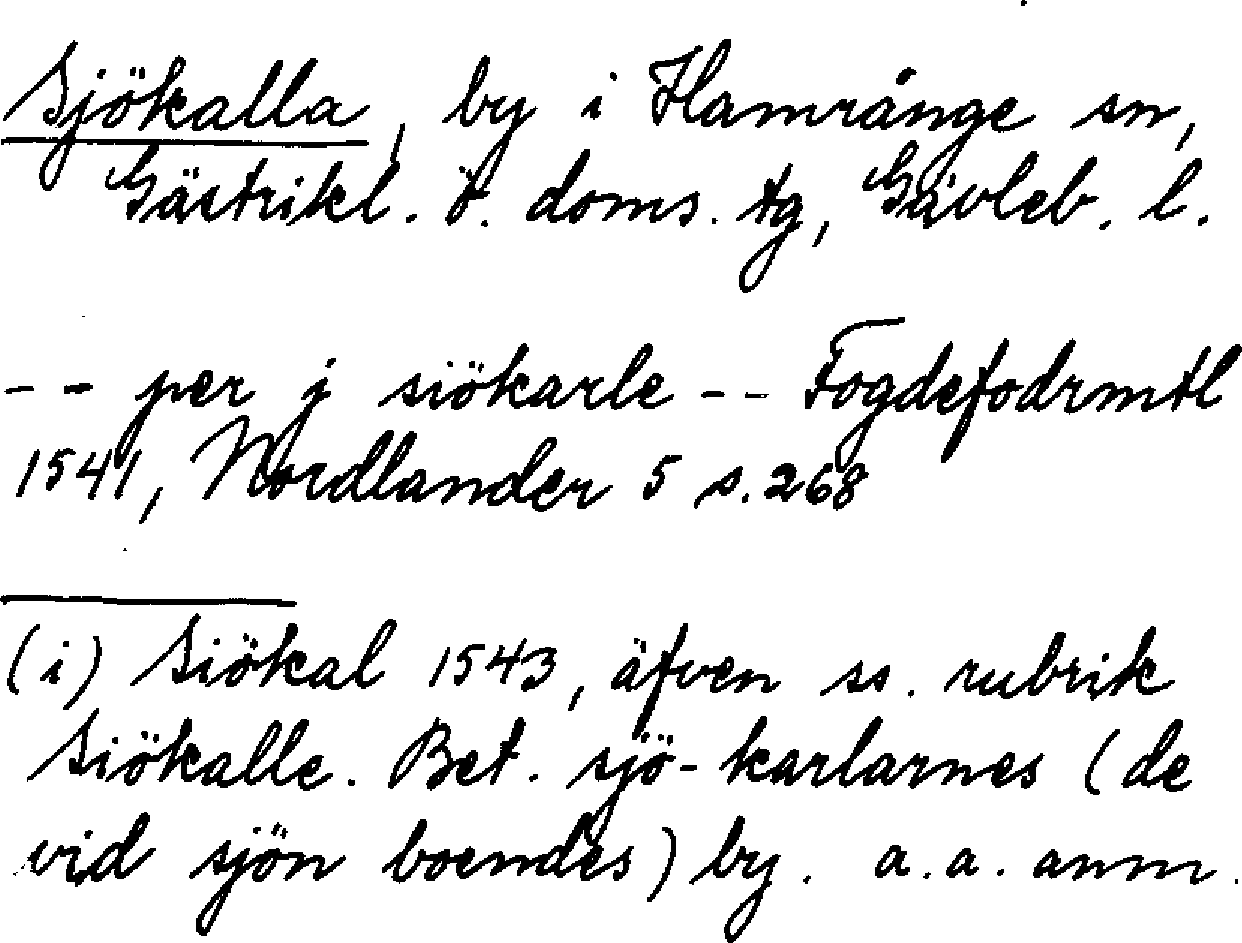 Sjökalla, by i Hamrånge sn,
Gästrikl. ö. doms. tg, Gävleb. l.
-- per j siökarle -- Fogdefodrmtl
1541, Nordlander 5 s.268
(i) Siökal 1543, äfven ss. rubrik
Siökalle. Bet. sjö-karlarnes (de
vid sjön boendes) by. a.a. anm.